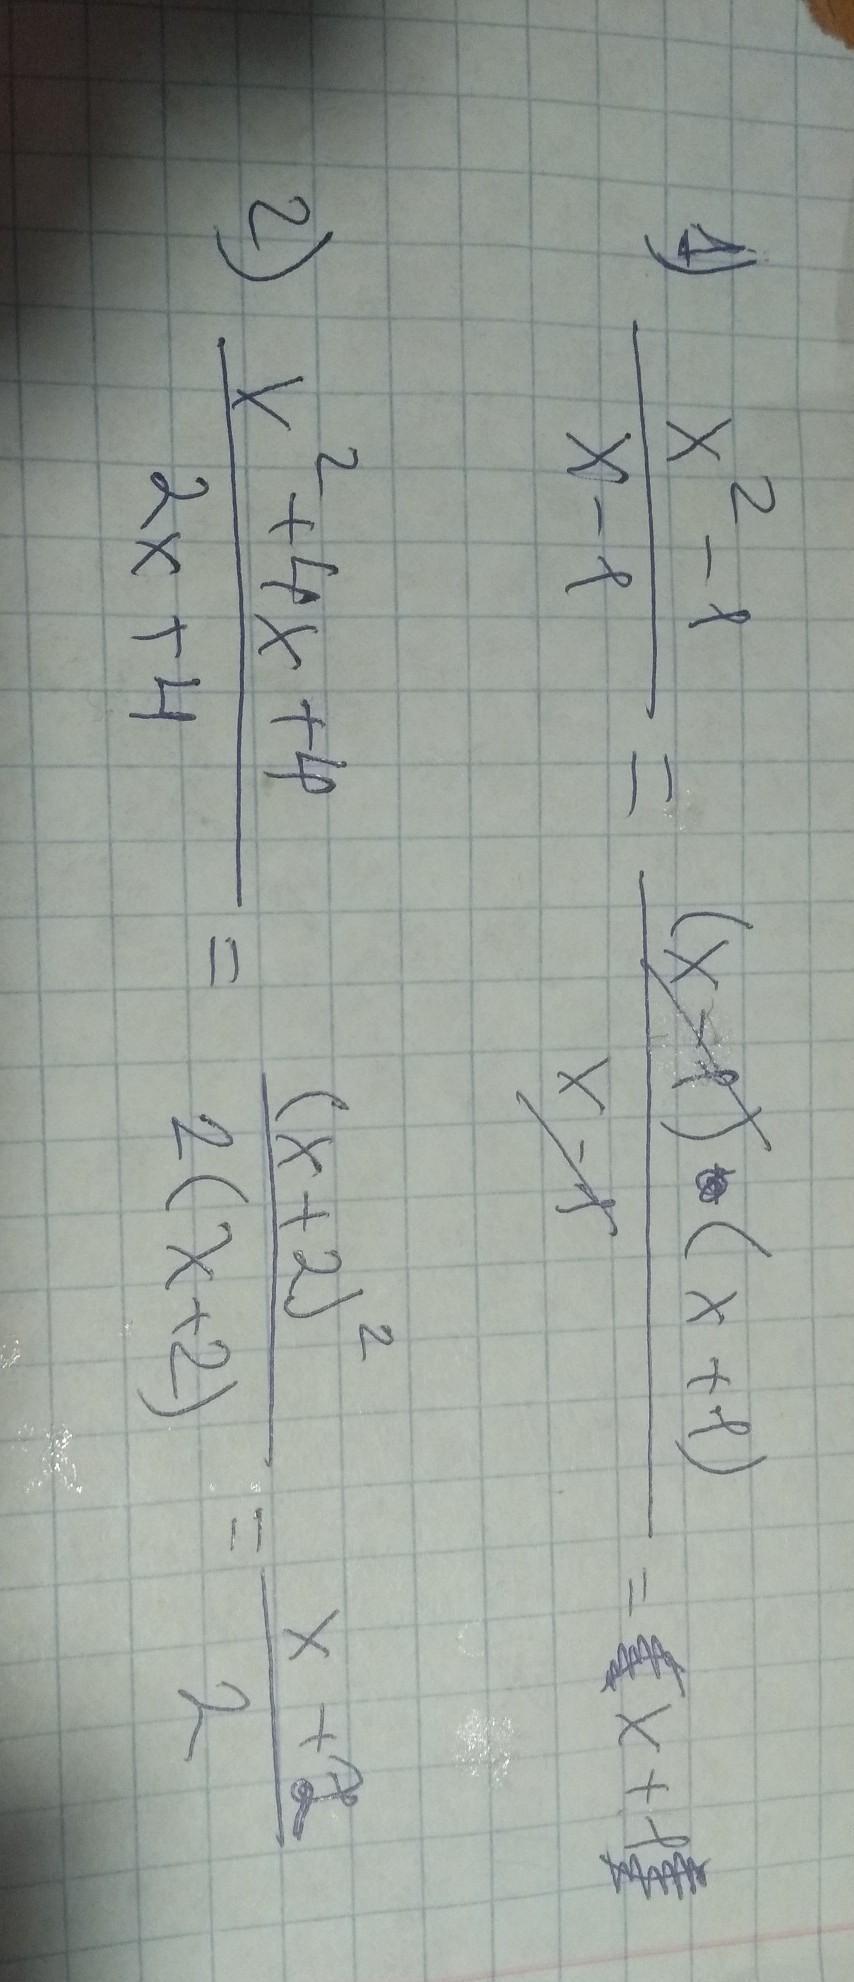 1) (x² - 1)/(x - 1) = ((x - 1)(x + 1))/(x - 1) = x + 1
2) (x² + 4x + 4)/(2x + 4) = (x + 2)²/(2(x + 2)) = (x + 2)/2